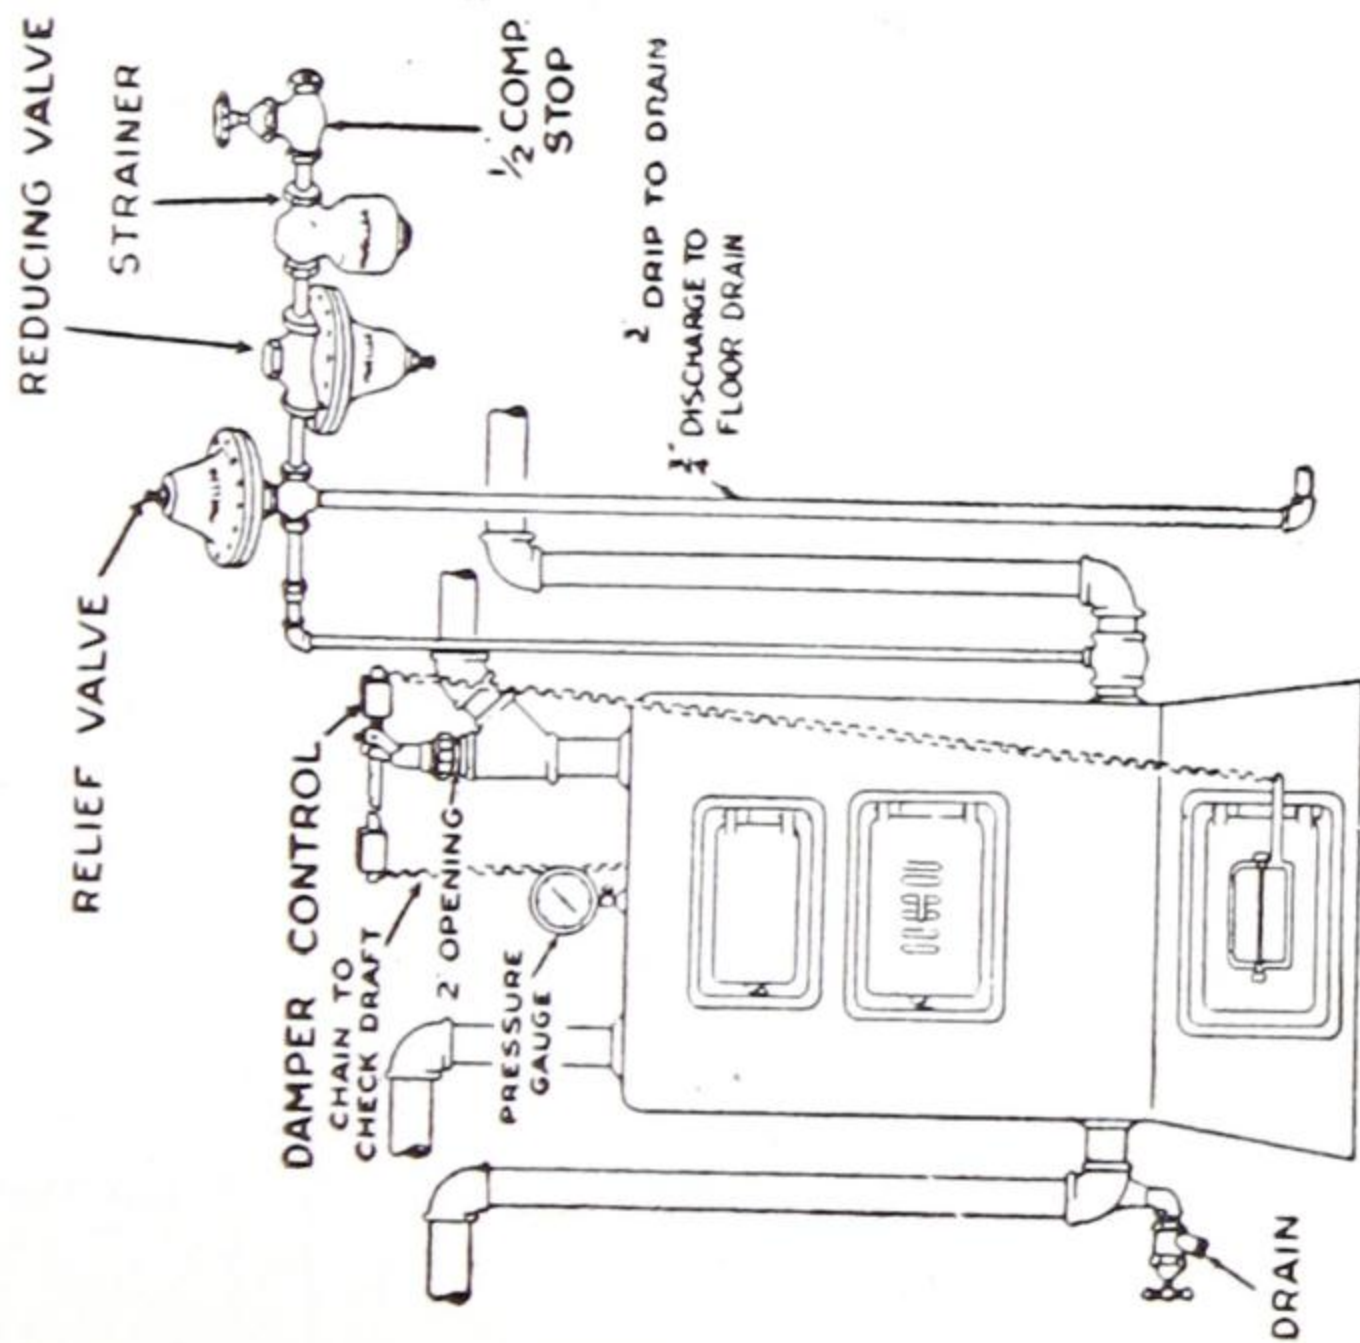 REDUCING VALVE
STRAINER
1/2 COMP.
STOP
2" DRIP TO DRAIN
3/4" DISCHARGE TO
FLOOR DRAIN
RELIEF VALVE
DAMPER CONTROL
CHAIN TO
CHECK DRAFT
2" OPENING
PRESSURE
GAUGE
DRAIN